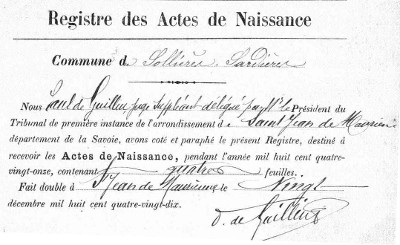 Registre des Actes de Naissance
Commune de Sollières Sardières
Nous Paul de Guillen, juge suppléant délégué par Mr le Président du
Tribunal de première instance de l'arrondissement d e Saint Jean de Maurienne
département de la Savoie, avons coté et paraphé le présent Registre, destiné à
recevoir les Actes de Naissance, pendant l'année mil huit cent quatre-
vingt-onze, contenant quatre feuilles.
Fait double à St Jean de Maurienne le Vingt
décembre mil huit cent quatre-vingt-dix.